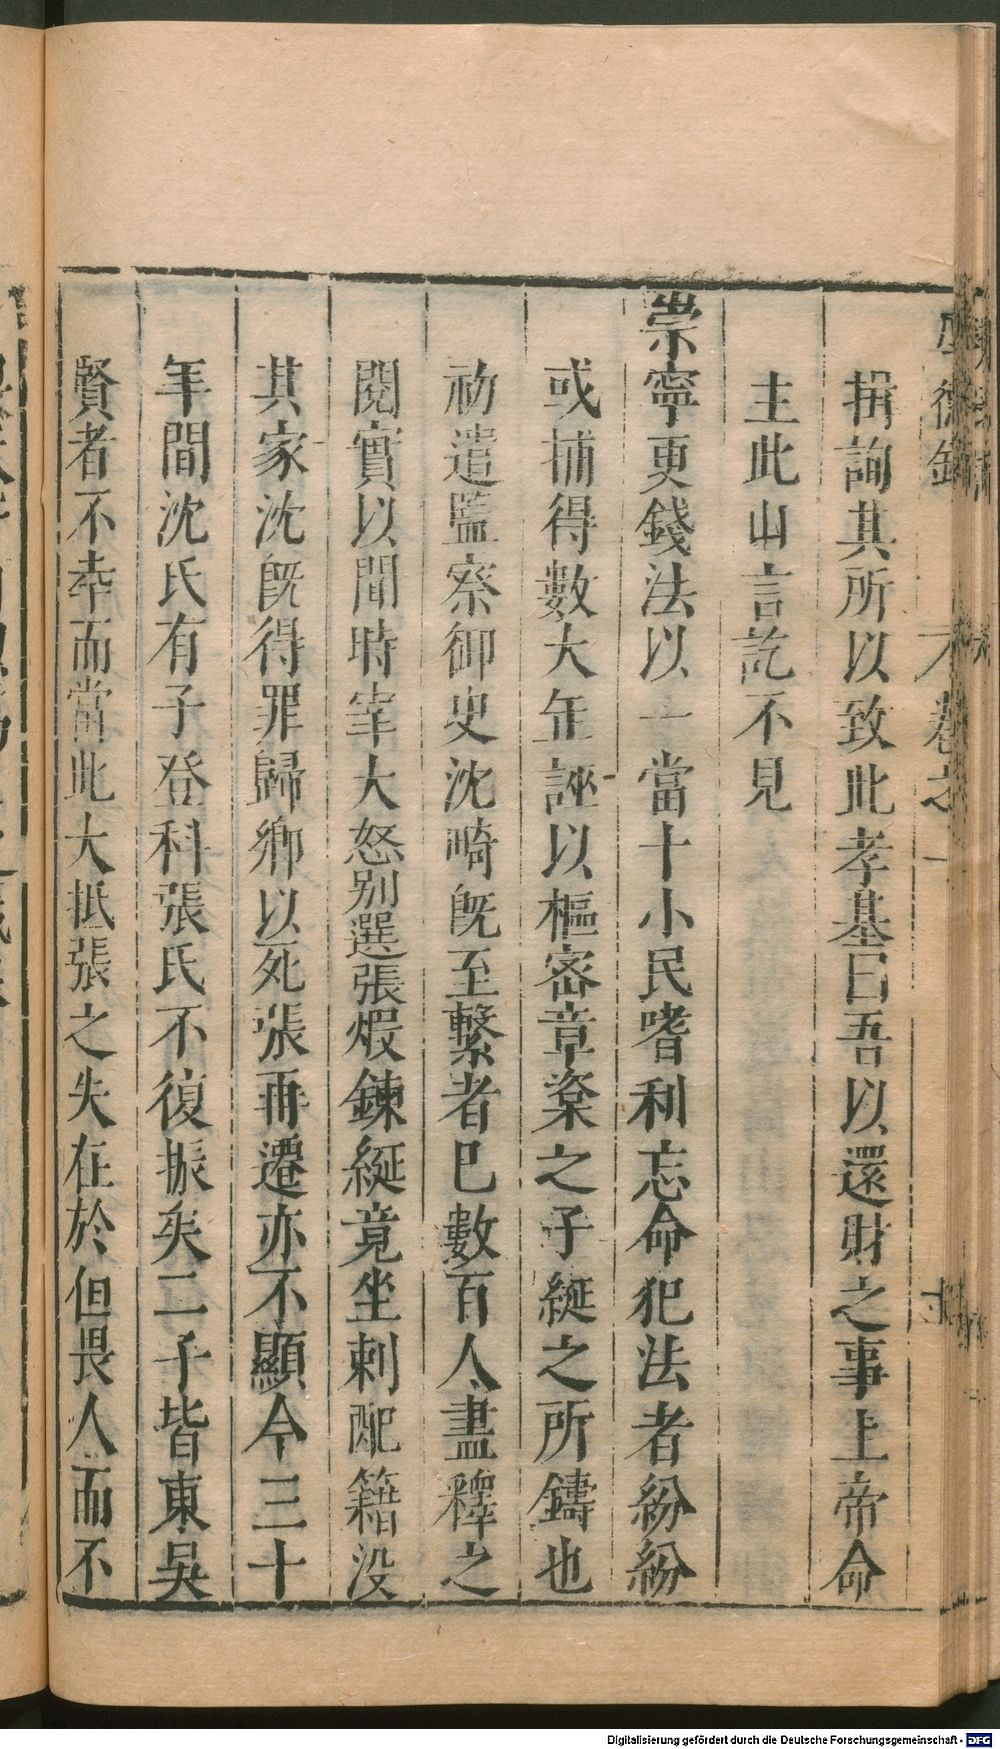 揖詢其所以致此孝基曰吾以還財之事上帝命
主此山言訖不見
崇寧更錢法以一當十小民嗜利忘命犯法者紛紛
或捕得數大缶誣以樞密章楶之子綖之所鑄也
初遣監察御史沈畸旣至繫者已數百人盡釋之
閱實以聞時宰大怒別選張煅鍊綖竟坐刺配籍没
其家沈旣得罪歸鄉以死張再遷亦不顯今三十
年間沈氏有子登科張氏不復振矣二子皆東吳
賢者不幸而當此大抵張之失在於但畏人而不
Digitalisierung gefördert durch die Deutsche Forschungsgemeinschaft - DFG